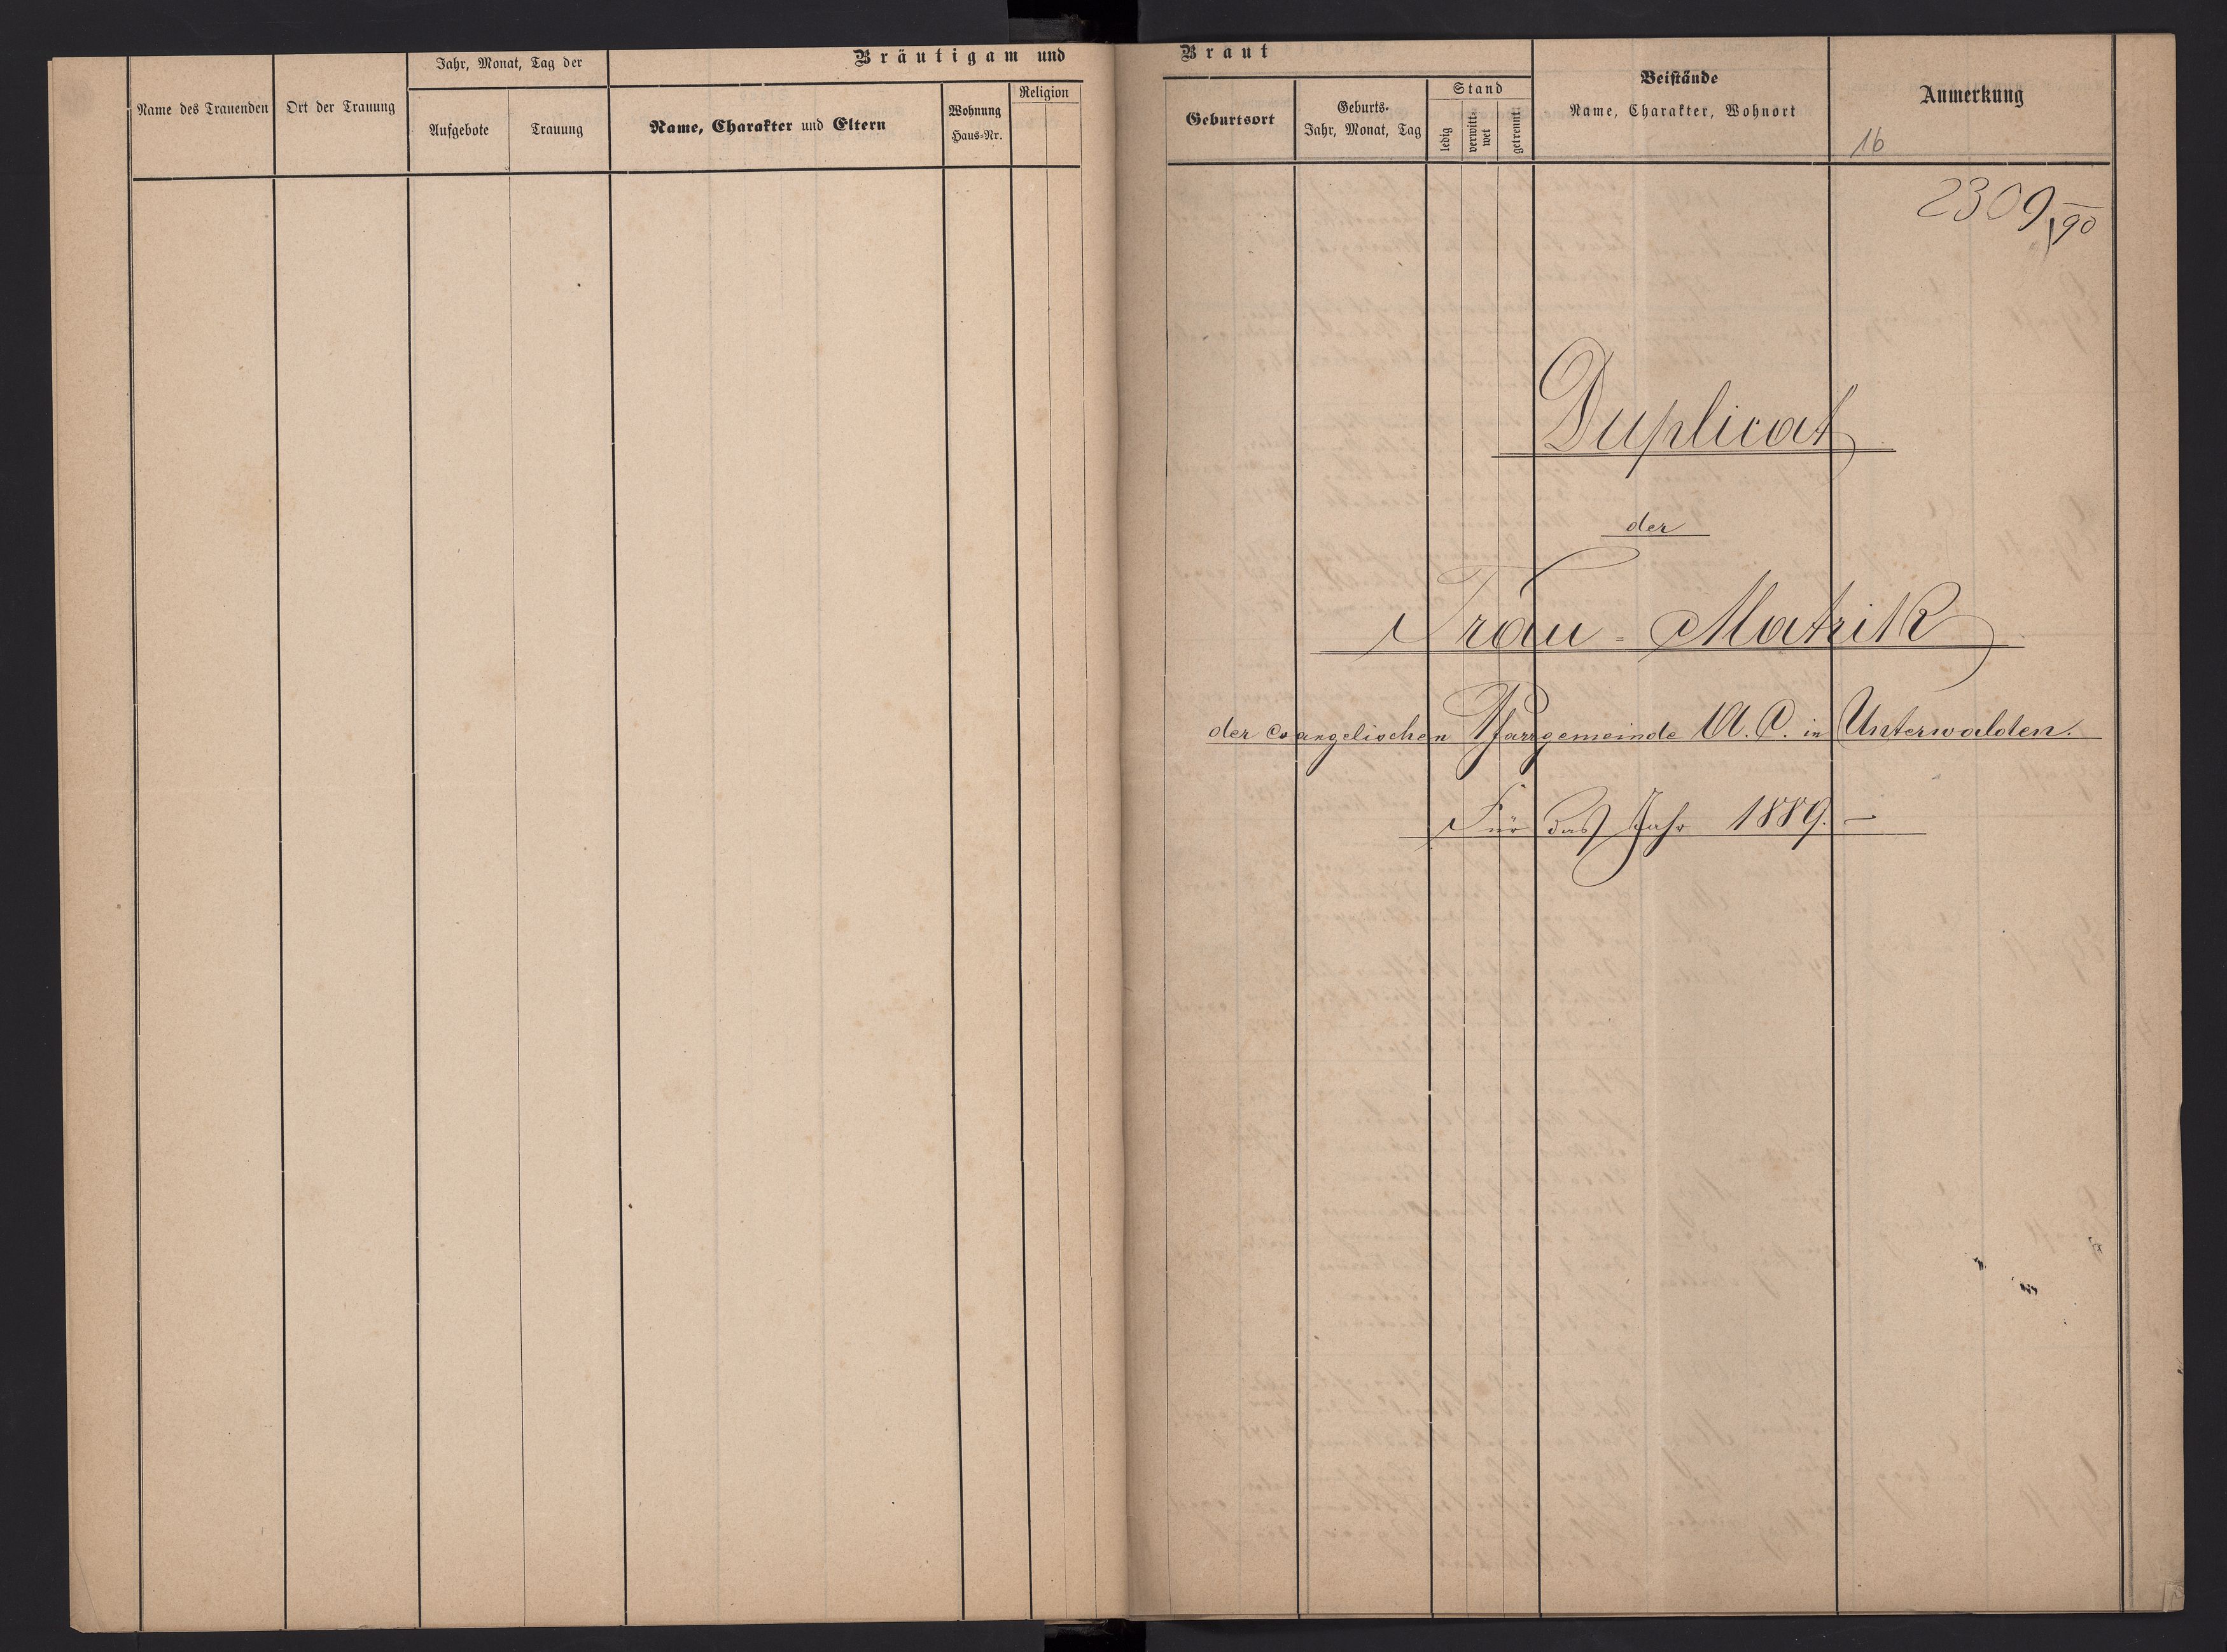 Bräutigam und
Name des Trauenden
Ort der Trauung
Jahr, Monat, Tag der
Aufgebote
Trauung
Name, Charakter und Eltern
Wohnung
Haus-Nr.
Religion
Braut
Geburtsort
Geburts-
Jahr, Monat, Tag
Stand
ledig
verwitt-
wet
getrennt
Beistände
Name, Charakter, Wohnort
Anmerkung
16
2309/90
Duplicat
der
Trau-Matrik
der evangelischen Pfarrgemeinde A. C. in Unterwalden.
Für das Jahr 1889. –